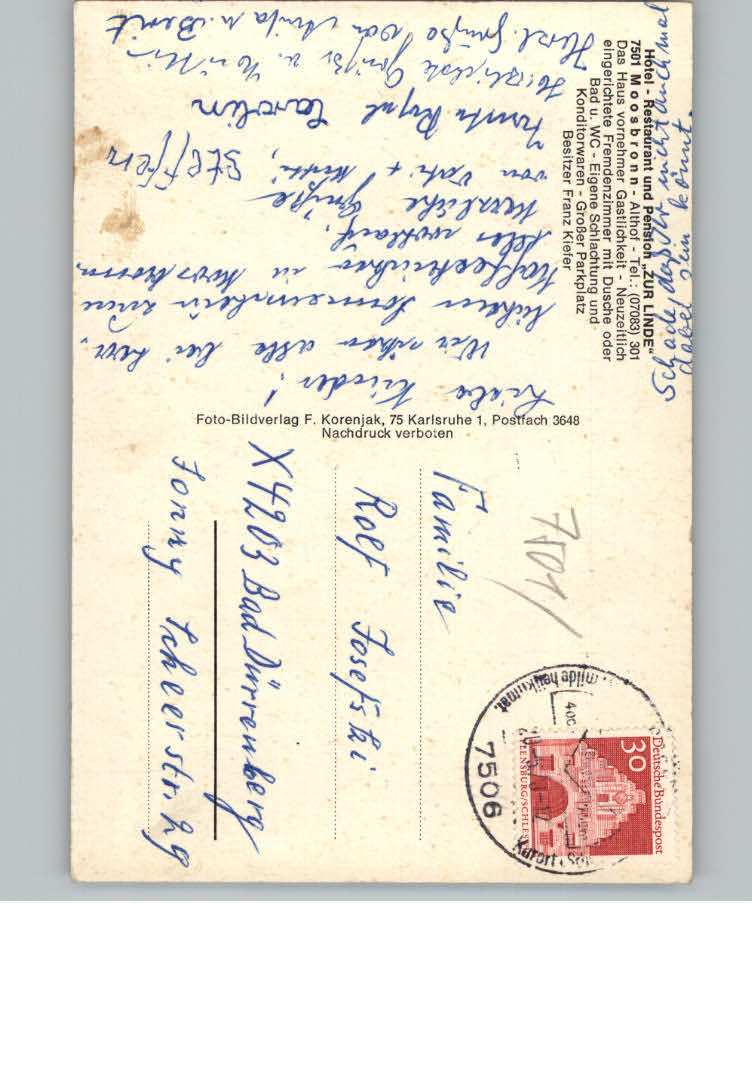 Hotel - Restaurant und Pension „ZUR LINDE"
7501 Moosbronn - Althof - Tel.: (07083) 301
Das Haus vornehmer Gastlichkeit - Neuzeitlich
eingerichtete Fremdenzimmer mit Dusche oder
Bad u. WC - Eigene Schlachtung und
Konditorwaren - Großer Parkplatz
Besitzer Franz Kiefer
Schade, daß Ihr nicht auch mal
dabei sein könnt.
Liebe Kinder!
Wir sitzen alle bei herr-
lichem Sonnenschein zum
Kaffeetrinken in Moosbronn.
Alles wohlauf.
Herzliche Grüße
von Vati + Mutti,
Steffen
Carolin
Herzliche Grüße
Herzl. Grüße von Anita u. Berit
Foto-Bildverlag F. Korenjak, 75 Karlsruhe 1, Postfach 3648
Nachdruck verboten
7501/
Familie
Rolf Josefski
X4203 Bad Dürrenberg
Jonny Scheerstr. 29
Deutsche Bundespost
30
FLENSBURG/SCHLES
7506
milde heilklimat.
Kurort